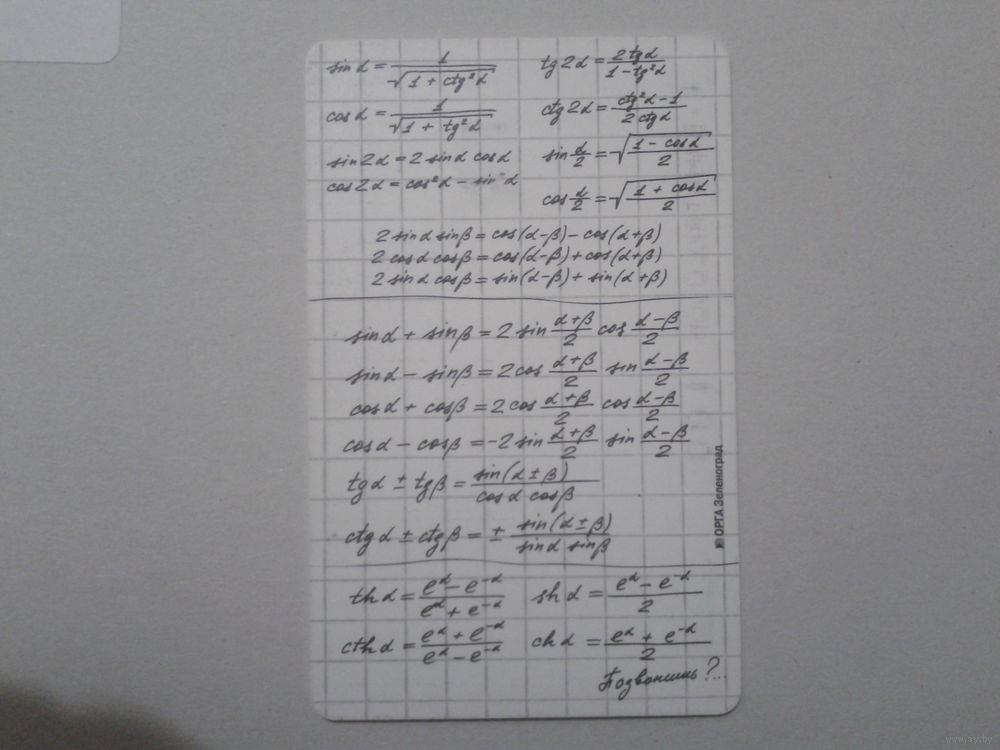 sin α = 1/√(1 + ctg²α)
tg 2α = 2 tg α/(1 − tg²α)
cos α = 1/√(1 + tg²α)
ctg 2α = (ctg²α − 1)/(2 ctg α)
sin 2α = 2 sin α cos α
sin α/2 = √((1 − cos α)/2)
cos 2α = cos²α − sin²α
cos α/2 = √((1 + cos α)/2)
2 sin α sin β = cos(α−β) − cos(α+β)
2 cos α cos β = cos(α−β) + cos(α+β)
2 sin α cos β = sin(α−β) + sin(α+β)
sin α + sin β = 2 sin (α+β)/2 cos (α−β)/2
sin α − sin β = 2 cos (α+β)/2 sin (α−β)/2
cos α + cos β = 2 cos (α+β)/2 cos (α−β)/2
cos α − cos β = −2 sin (α+β)/2 sin (α−β)/2
tg α ± tg β = sin(α ± β)/(cos α cos β)
ctg α ± ctg β = ± sin(α ± β)/(sin α sin β)
th α = (e^α − e^−α)/(e^α + e^−α)
sh α = (e^α − e^−α)/2
cth α = (e^α + e^−α)/(e^α − e^−α)
ch α = (e^α + e^−α)/2
Позвонишь?...
ОРГА Зеленоград
www.ay.by